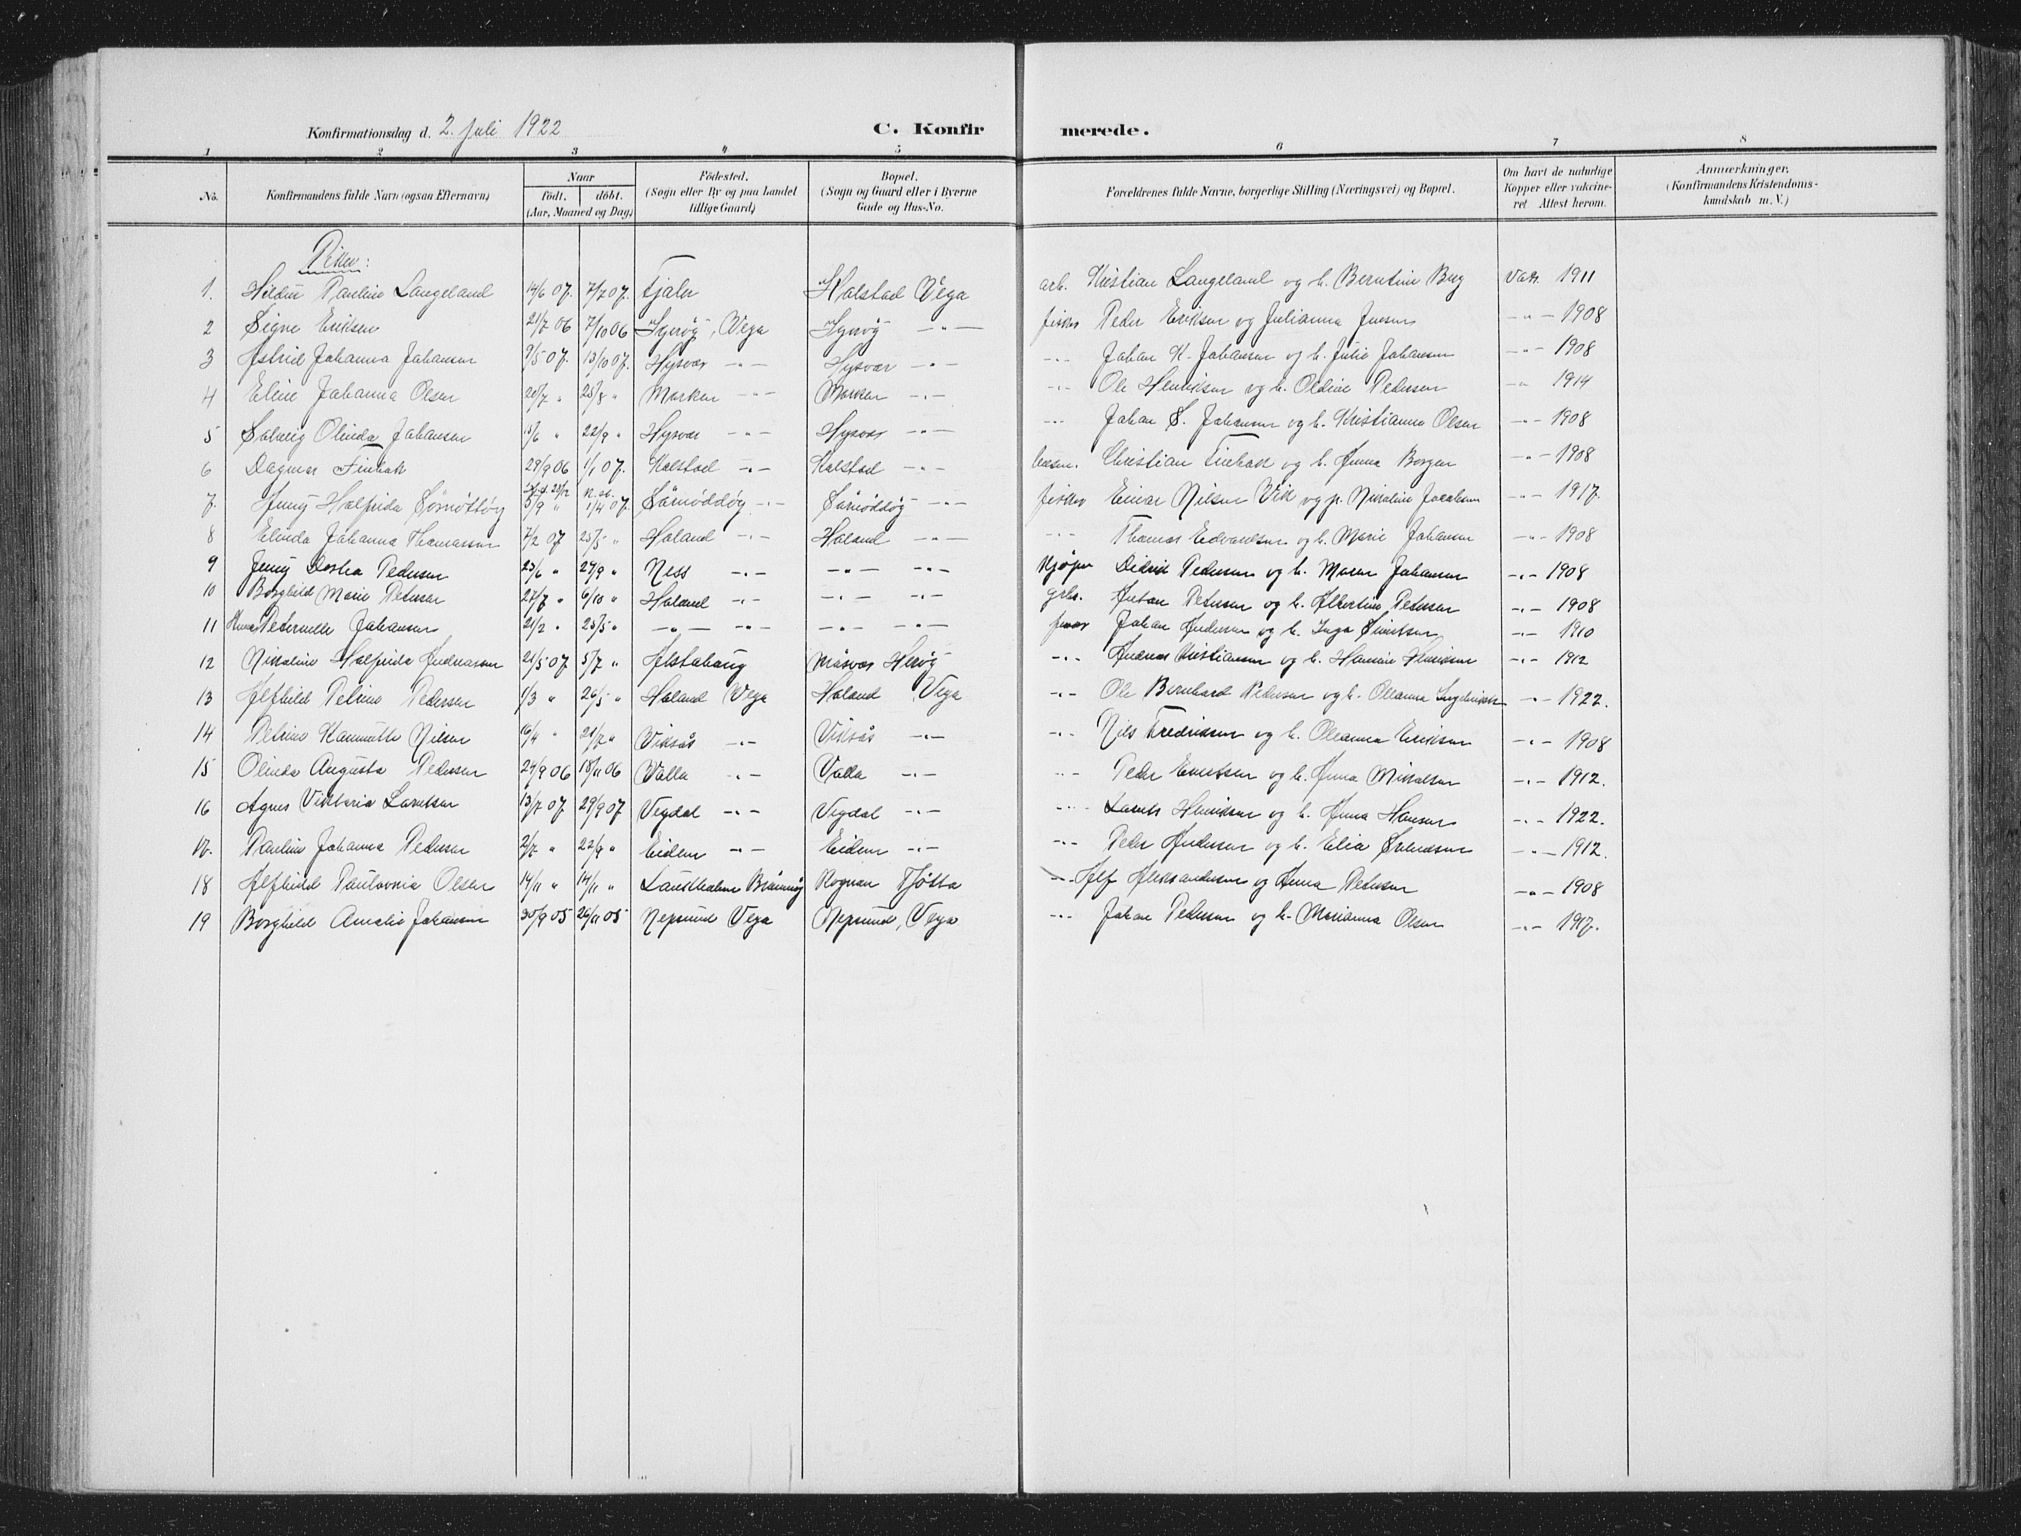 Konfirmationsdag d. 2. Juli 1922 C. Konfirmerede.
1 2 3 4 5 6 7 8
No. Konfirmandens fulde Navn (ogsaa Efternavn) Naar födt. döbt. (Aar, Maaned og Dag) Födested. (Sogn eller By og paa Landet tillige Gaard) Bopæl. (Sogn og Gaard eller i Byerne Gade og Hus-No. Forældrenes fulde Navne, borgerlige Stilling (Næringsvei) og Bopæl. Om havt de naturlige Kopper eller vakcineret Attest herom. Anmærkninger. (Konfirmandens Kristendomskundskab m. V.)
Piker:
1. Pauline Langeland 14/6 07. 7/7 07. Fjaler Kolstad Vega arb. Kristian Langeland og h. Berntine Berg Vak. 1911
2 Signe Eriksen 21/7 06 7/10 06 Vega -"- fisker Peder Eriksen og Julianna Jensen -"- 1908
3 Astrid Johanna Johansen 9/5 07. 13/10 07. Hysvær -"- Hysvær -"- -"- Johan K. Johansen og h. Julie Johansen -"- 1908
4 Eline Johanna Olsen 20/7 " 25/8 " Morken -"- Morken -"- -"- Ole Henriksen og h. Oldine Pedersen -"- 1914
5 Solveig Olinda Johansen 15/6 " 22/9 " Hysvær -"- Hysvær -"- -"- Johan S. Johansen og h. Kristianna Olsen -"- 1908
6 Dagmar Finhak 29/9 06 1/1 07. Kolstad -"- Kolstad -"- Christian Finhak og h. Anna Borgen -"- 1908
7. Jenny Halfrida 5/9 " 1/4 07. -"- -"- fisker Einar Nilsen Vik og p. Nikoline Jacobsen -"- 1917.
8 Elinda Johanna Thomassen 7/2 07 25/5 " Holand -"- Holand -"- -"- Thomas Edvardsen og h. Marie Johansen -"- 1908
9 Jenny Dorthea Pedersen 23/6 " 29/9 " Ness -"- -"- -"- Kjøpm Didrik Pedersen og h. Maren Johansen -"- 1908
10 Borghild Marie Petersen 27/7 " 6/10 " Holand -"- -"- -"- grbr. Anton Petersen og h. Albertine Petersen -"- 1908
11 Peternelle Johansen 21/2 " 25/5 " -"- -"- -"- -"- Johan Andersen og h. Inga Sivertsen -"- 1910
12 Nikoline Halfrida Andreassen 21/5 07 5/7 " Alstahaug Måsvær Herøy -"- Andreas Kristiansen og h. Hansine Henriksen -"- 1912
13 Alfhild Petrine Pedersen 1/3 " 26/5 " Holand Vega Holand Vega -"- Ole Bernhard Pedersen og h. Oleanna -"- 1922.
14 Petrine Nilsen 16/4 " 21/7 " Viksås -"- Viksås -"- -"- Nils Fredriksen og h. Oleanna Eriksen -"- 1908
15 Olinda Augusta Pedersen 24/9 06 18/11 06 Valla -"- Valla -"- -"- Peder Evertsen og h. Anna Mikalsen -"- 1912.
16 Agnes Viktoria Larntsen 13/7 07 29/9 07 Vegdal -"- Vegdal -"- -"- Henriksen og h. Anna Hansen -"- 1922.
17. Pauline Johanna Pedersen 2/7 " 22/9 " Eidem -"- Eidem -"- -"- Peder Andersen og h. Elia -"- 1912.
18 Alfhild Paulovnia Olsen 14/11 " 14/11 " Brønnøy Rognan Tjøtta -"- Alf Aleksandersen og Anna Petersen -"- 1908
19 Borghild Amalie Johansen 30/9 05 26/11 05 Nepsund Vega Nepsund, Vega -"- Johan Pedersen og h. Marianna Olsen -"- 1917.